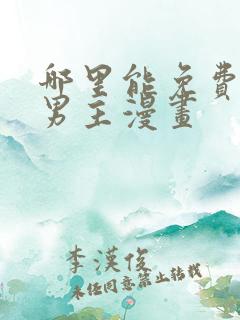 哪里能免費
男主漫畫
李漢俊
未经同意禁止转载